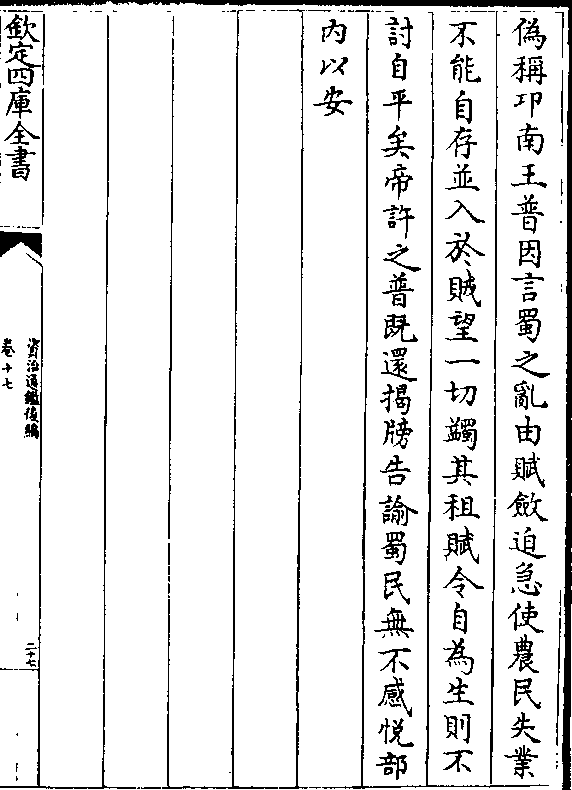 偽稱卭南王普因言蜀之亂由賦斂迫急使農民失業
不能自存並入於賊望一切蠲其租賦令自為生則不
討自平矣帝許之普既還揭牓告諭蜀民無不感悅部
内以安
欽定四庫全書
資治通鑑後編
卷十七
二十七